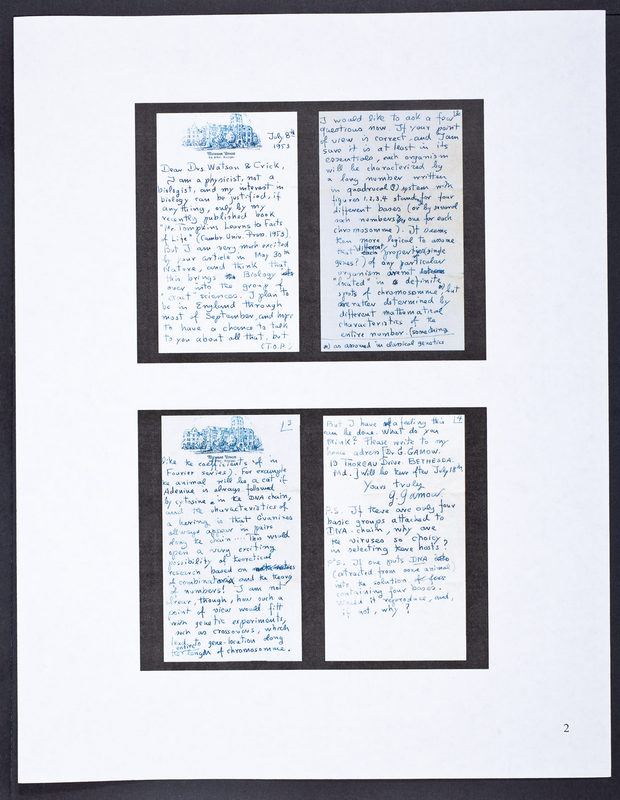 July 8th
1953
Michigan Union
Dear Drs Watson & Crick,
I am a physicist, not a
biologist, and my interest in
biology can be justified, if
anything, only by my
recently published book
"Mr Tompkins Learns the Facts
of Life" (Cambr. Univ. Press. 1953).
But I am very much excited
by your article in May 30th
Nature, and think that
this brings Biology
over into the group of
"exact" sciences. I plan to
be in England through
most of September, and hope
to have a chance to talk
to you about all that, but
(T.O.P.)
I would like to ask a few
questions now. If your point
of view is correct, and I am
sure it is at least in its
essentials, each organism
will be characterized by
a long number written
in quadrucal (?) system with
figures 1,2,3,4 standing for four
different bases (or by several
such numbers, one for each
chromosomme). It seems
than more logical to assume
that different properties (single
genes?) of any particular
organism are not
"located" in definite
spots of chromosomme *), but
are rather determined by
different mathematical
characteristics of the
entire number (something
*) as assumed in classical genetics
L3
Michigan Union
like the coefficients in
Fourier series). For example
the animal will be a cat if
Adenine is always followed
by cytosine in the DNA chain,
and the characteristics of
a herring is that Guanines
allways appear in pairs
along the chain... This would
open a very exciting
possibility of theoretical
research based on
of combinatorix and the theory
of numbers! I am not
clear, though, how such a
point of view would fitt
with genetic experiments,
such as crossovers, which
lead to gene-location along
the length of chromosomme.
L4
But I have a feeling this
can be done. What do you
think? Please write to my
home adress [Dr. G. GAMOW.
19 THOREAU DRIVE. BETHESDA.
Md.] Will be there after July 18th.
Yours truly
G. Gamow.
P.S. If there are only four
basic groups attached to
DNA-chain, why are
the viruses so choicy,
in selecting there hosts.
P.S. If one puts DNA
(extracted from some animal
into the solution of
containing four bases.
Would it reproduce, and,
if not, why?
2